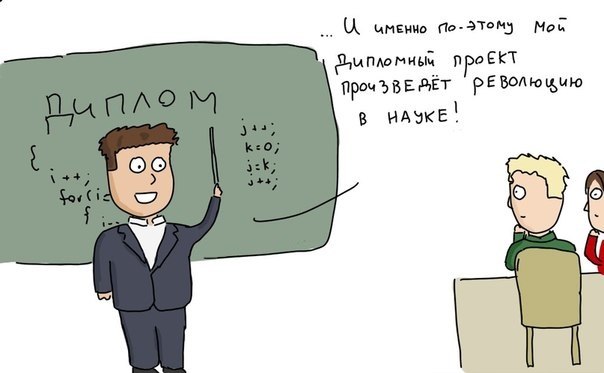 ... И именно по-этому мой
дипломный проект
произведёт революцию
в науке!
ДИПЛОМ
{
i++;
for(i=
{
i--
j++;
k=0;
j=k;
j++;